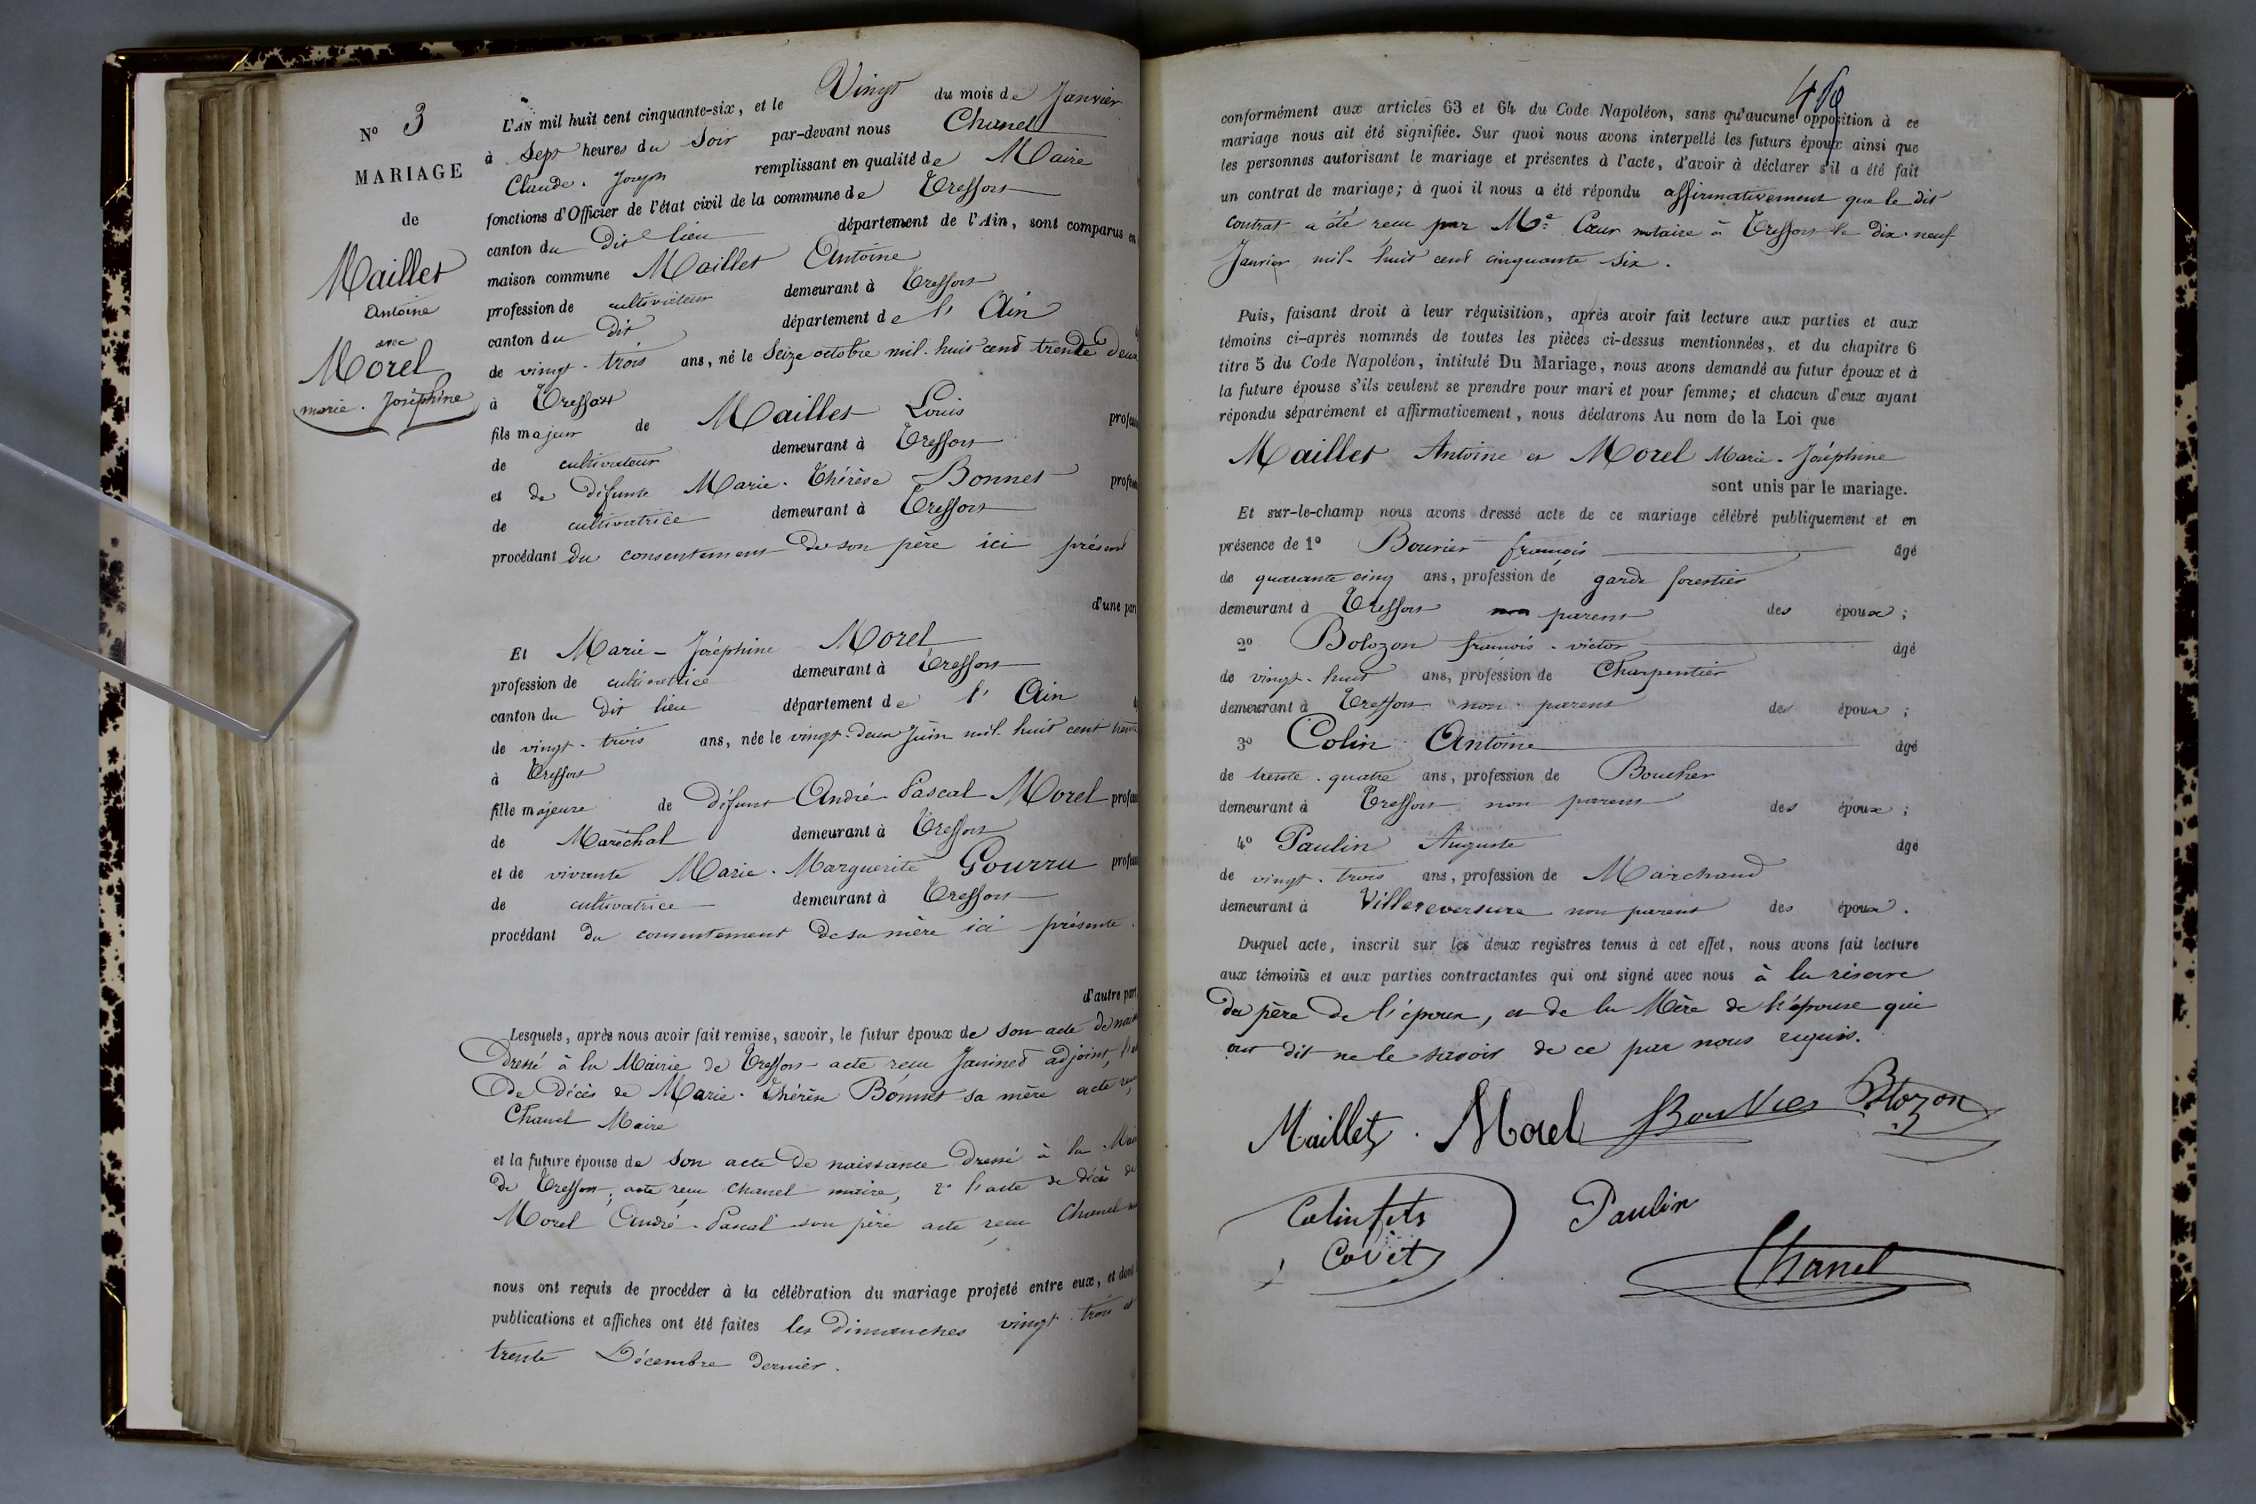 N° 3
MARIAGE
de
Maillet
Antoine
avec
Morel
marie. Joséphine
L'AN mil huit cent cinquante-six, et le Vingt du mois de Janvier
à Sept heures du Soir par-devant nous Chanel
Claude. Joseph remplissant en qualité de Maire
fonctions d'Officier de l'état civil de la commune de Treffort
canton du dit lieu département de l'Ain, sont comparus en
maison commune Maillet Antoine
profession de cultivateur demeurant à Treffort
canton du dit département de l'Ain
de vingt-trois ans, né le Seize octobre mil-huit cent trente deux
à Treffort
fils majeur de Maillet Louis profession
de cultivateur demeurant à Treffort
et de défunte Marie-Thérèse Bonnet
de cultivatrice demeurant à Treffort
procédant du consentement de son père ici présent
d'une part
Et Marie-Joséphine Morel
profession de cultivatrice demeurant à Treffort
canton du dit lieu département de l'Ain
de vingt-trois ans, née le vingt-deux Juin mil huit cent trente
à Treffort
fille majeure de défunt André Pascal Morel
de Maréchal demeurant à Treffort
et de vivante Marie-Marguerite Gourru
de cultivatrice demeurant à Treffort
procédant du consentement de sa mère ici présente.
d'autre part
Lesquels, après nous avoir fait remise, savoir, le futur époux de son acte de
dressé à la Mairie de Treffort acte reçu Janinet adjoint,
de décès de Marie-Thérèse Bonnet sa mère acte reçu
Chanel Maire
et la future épouse de son acte de naissance dressé à la
de Treffort; acte reçu chanel maire, 2° l'acte de décès de
Morel André-Pascal son père acte reçu Chanel
nous ont requis de procéder à la célébration du mariage projeté entre eux, et dont
publications et affiches ont été faites les dimanches vingt-trois et
trente Décembre dernier.
conformément aux articles 63 et 64 du Code Napoléon, sans qu'aucune opposition à ce
mariage nous ait été signifiée. Sur quoi nous avons interpellé les futurs époux ainsi que
les personnes autorisant le mariage et présentes à l'acte, d'avoir à déclarer s'il a été fait
un contrat de mariage; à quoi il nous a été répondu affirmativement que le dit
contrat a été recu par Me Cœur notaire à Treffort le dix-neuf
Janvier mil-huit cent cinquante six.
Puis, faisant droit à leur réquisition, après avoir fait lecture aux parties et aux
témoins ci-après nommés de toutes les pièces ci-dessus mentionnées, et du chapitre 6
titre 5 du Code Napoléon, intitulé Du Mariage, nous avons demandé au futur époux et à
la future épouse s'ils veulent se prendre pour mari et pour femme; et chacun d'eux ayant
répondu séparément et affirmativement, nous déclarons Au nom de la Loi que
Maillet Antoine et Morel Marie-Joséphine
sont unis par le mariage.
Et sur-le-champ nous avons dressé acte de ce mariage célébré publiquement et en
présence de 1° Bouvier françois âgé
de quarante cinq ans, profession de garde forestier
demeurant à Treffort non parent des époux;
2° Bolozon françois-victor âgé
de vingt-huit ans, profession de Charpentier
demeurant à Treffort non parent des époux;
3° Colin Antoine âgé
de trente-quatre ans, profession de Boucher
demeurant à Treffort non parent des époux;
4° Paulin Auguste âgé
de vingt-trois ans, profession de Marchand
demeurant à Villereversure non parent des époux.
Duquel acte, inscrit sur les deux registres tenus à cet effet, nous avons fait lecture
aux témoins et aux parties contractantes qui ont signé avec nous à la réserve
du père de l'époux, et de la Mère de l'épouse qui
ont dit ne le savoir de ce par nous requis.
Maillet. Morel Bouvier Bolozon
Colin fils Paulin
Covet
Chanel